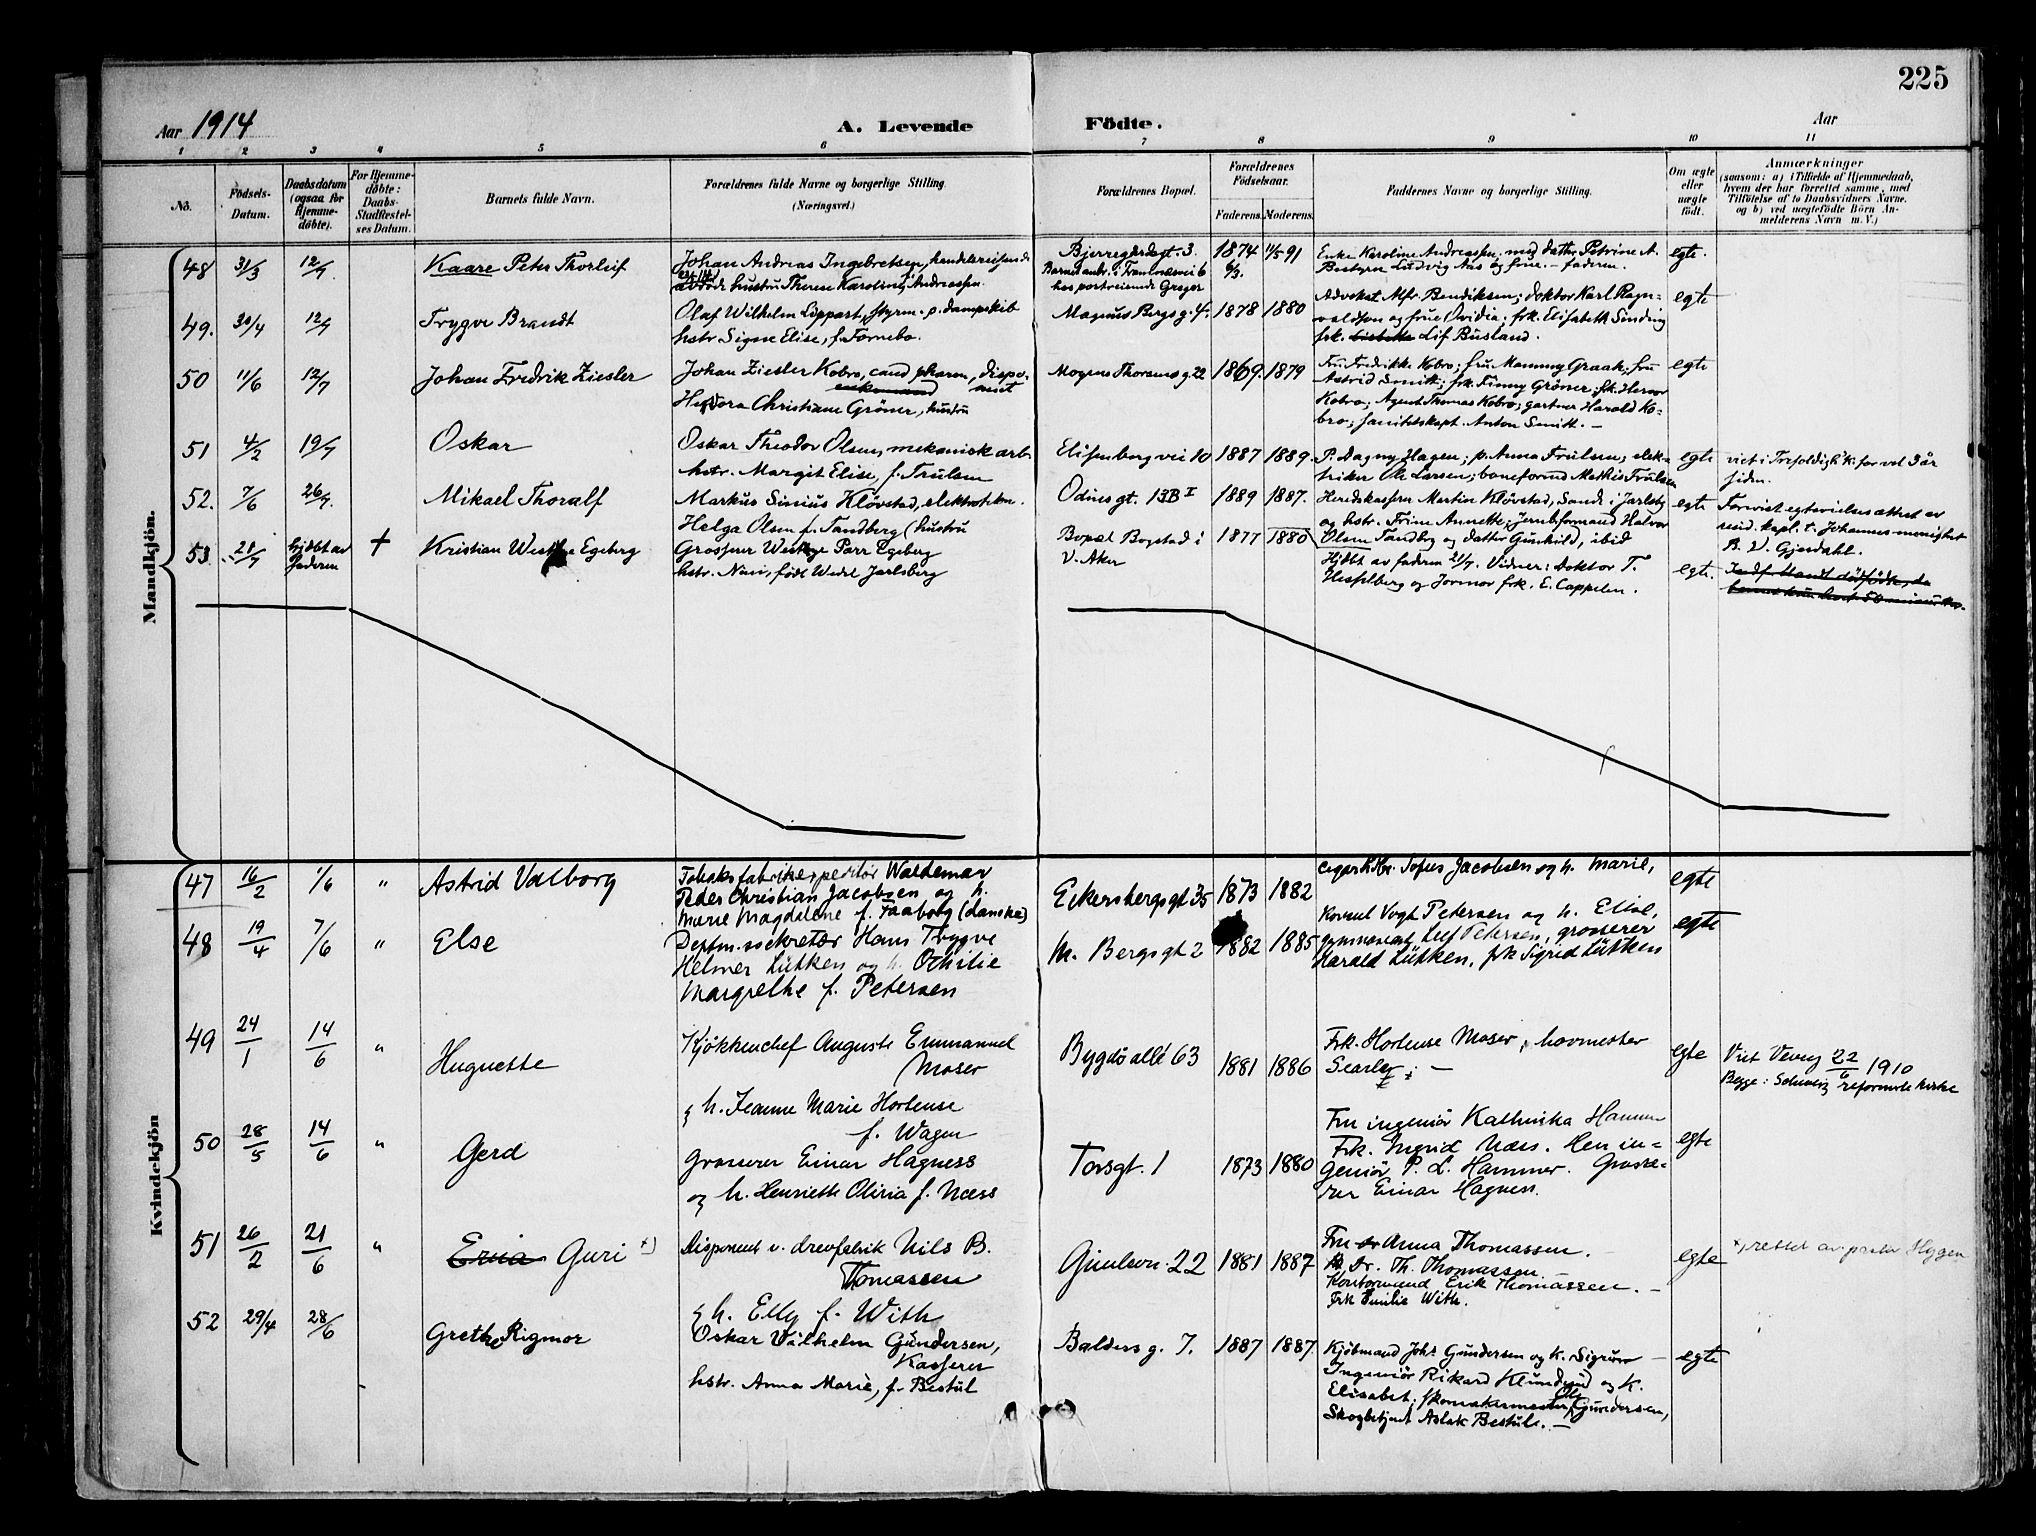 225
Aar 1914
A. Levende
Födte.
Aar
1 2 3 4 5 6 7 8 9 10 11
No.
Födsels-Datum.
Daabsdatum (ogsaa for Hjemme-døbte).
For Hjemme-døbte: Daabs-Stadfæstel-ses Datum.
Barnets fulde Navn.
Forældrenes fulde Navne og borgerlige Stilling.
(Næringsvei.)
Forældrenes Bopæl.
Forældrenes Födselsaar.
Faderens. Moderens.
Faddernes Navne og borgerlige Stilling.
Om ægte eller uægte født.
Anmærkninger
(saasom: a) i Tilfælde af Hjemmedaab,
hvem der har forrettet samme, med
Tilföielse af to Daabsvidners Navne.
og b) ved uægtefödte Börn An-
melderens Navn m. V.)
Mandkjön.
48 31/3 12/7. Kaare Peter Thorleif
Johan Andreas Ingebretsen, handelsreisende
hustru Therese Karoline Andreassen
Bjerregårdsgt. 3.
1874 6/3. 11/5 91
Enke Karoline Andreassen, med datter Petrine A.
Bestyrer Ludvig Aas og frue. – faderen.
egte.
49. 30/4 12/7 Trygve Brandt
Olaf Wilhelm Lippart, styrm. p. dampskib
hstr. Signe Elise, f. Fornebo.
Magnus Bergs g. 4.
1878 1880
Advokat Alfr. Bendiksen; doktor Karl Ragn-
valdsen og frue Ovidia; frk. Elisabeth Sinding
frk. Lif Busland.
egte
50 11/6 12/7 Johan Fredrik Ziesler
Johan Ziesler Kobro, cand pharm, dispo-
nent
Christiane Gröner, hustru
Mogens Thorsens g. 22
1869. 1879
Fru Fredrikke Kobro; fru Mammy Graah, fru
Astrid Smitt; frk. Finny Gröner; frk. Hervor
Kobro; Agent Thomas Kobro; gartner Harald Ko-
bro; sanitetskapt. Anton Smitt. –
egte
51 4/2 19/7 Oskar
Oskar Theodor Olsen, mekanisk arb.
hstr. Margit Elise, f. Trulsen
Elisenberg vei 10
1887 1889.
P. Dagny Hagen; p. Anna Trulsen, elek-
triker Ole Larsen; baneformd Mathis Trulsen
egte
viet i Trefoldigh. k. for vel 3 år
siden.
52. 7/6 26/7. Mikael Thoralf
Markus Sinius Klövstad, elektrotekn.
Helga Olsen f. Sandberg (hustru
Odins gt. 13B I
1889 1887.
Herredskasserer Martin Klövstad, Sande i Jarlsbg
og hstr. Trine Annette; Jernbformand Halvor
Olsen Sandbrg og datter Gunhild, ibid
egte
Forevist egtevielsesattest av
resid. kapl. t. Johannes menighet
B. V. Gjerdahl.
53. 21/7 hjdbt av faderen + Kristian Westye Egeberg
Grosserer Westye Parr Egeberg
hstr. Nini, født Wedel Jarlsberg
Bopæl Bogstad i
V. Aker
1877 1880
Hjdbt av faderen 21/7. Vidner: Doktor T.
Hesselberg og Jormor frk. E. Cappelen.
egte.
Kvindekjön
47 16/2 1/6 " Astrid Valborg
Tobaksfabrikexpeditör Waldemar
Peder Christian Jacobsen og h.
Marie Magdalene f. Faaborg (danske)
Eckersbergsgt 35
1873 1882
Sofus Jacobsen og h. Marie,
egte
48 19/4 7/6 " Else
Deptm.ssekretær Hans Trygve
Helmer Lütken og h. Othilie
Margrethe f. Petersen
M. Bergsgt 2
1882 1885
Konsul Vogt Petersen og h. Elise,
Leif Petersen, grosserer
Harald Lütken, frk Sigrid Lütken
egte
49 24/1 14/6 " Huguette
Kjökkenchef Auguste Emmanuel
Moser
og h. Jeanne Marie Hortense
f. Wagen
Bygdö allé 63
1881 1886
Frk. Hortense Moser, hovmester
egte
Viet Vevey 22/6 1910
Begge: Schweiz reformerte kirke
50 28/5 14/6 " Gerd
Grosserer Einar Hagness
og h. Henriette Oliria f. Næss
Torsgt. 1
1873 1880
Fru ingeniör Kathinka Hammer
Frk. Ingrid Næss. Herr in-
geniör P. L. Hammer. Grosse-
rer Einar Hagness.
egte
51 26/2 21/6 " Guri x)
Disponent v. drevfabrik Nils B.
Thomassen
og h. Elly f. With
Gimlevn. 22
1881 1887
Fru Anna Thomassen.
Dr. Th. Thomassen
Kontormand Erik Thomassen. –
Frk Emilie With.
egte
x) rettet av prster Hygen
52 29/4 28/6 Grethe Rigmor
Oskar Wilhelm Gundersen,
Kasserer
hstr. Anna Marie, f. Bestul
Balders g. 7.
1887 1887
Kjöbmand Johs Gundersen og k. Sigrun –
Ingeniör Rikard Klundsrud og k.
Elisabet; skomakermester Ole Gundersen,
Skogbetjent Aslak Bestule. –
egte